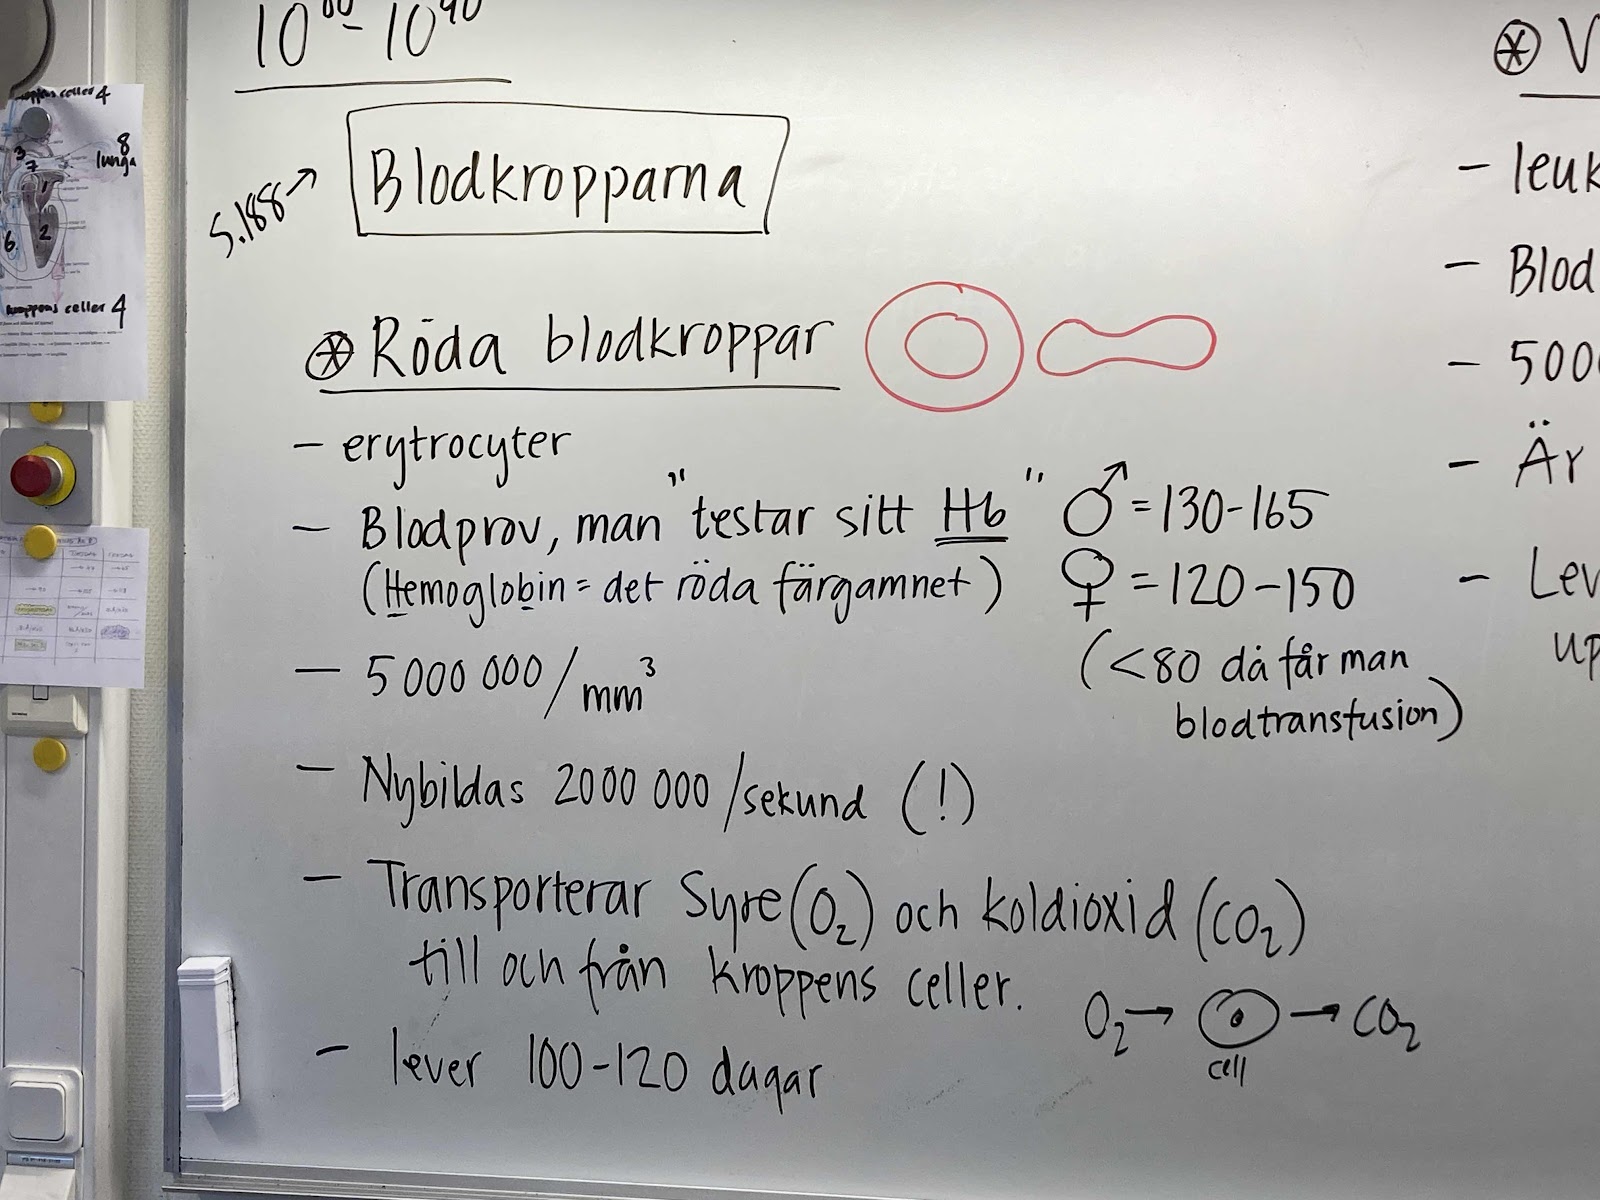 10⁰⁰-10⁴⁰
S.188→ Blodkropparna
Röda blodkroppar
- erytrocyter
- Blodprov, man "testar sitt Hb" ♂=130-165
(Hemoglobin = det röda färgamnet) ♀=120-150
(<80 då får man
blodtransfusion)
- 5 000 000/mm³
- Nybildas 2000 000/sekund (!)
- Transporterar Syre(O₂) och koldioxid (CO₂)
till och från kroppens celler.
O₂→ → CO₂
cell
- lever 100-120 dagar
V
- leuk
- Blod
- 500
- Är
- Lev
up
celler 4
8
lunga
3
7
1
6
2
kroppens celler 4